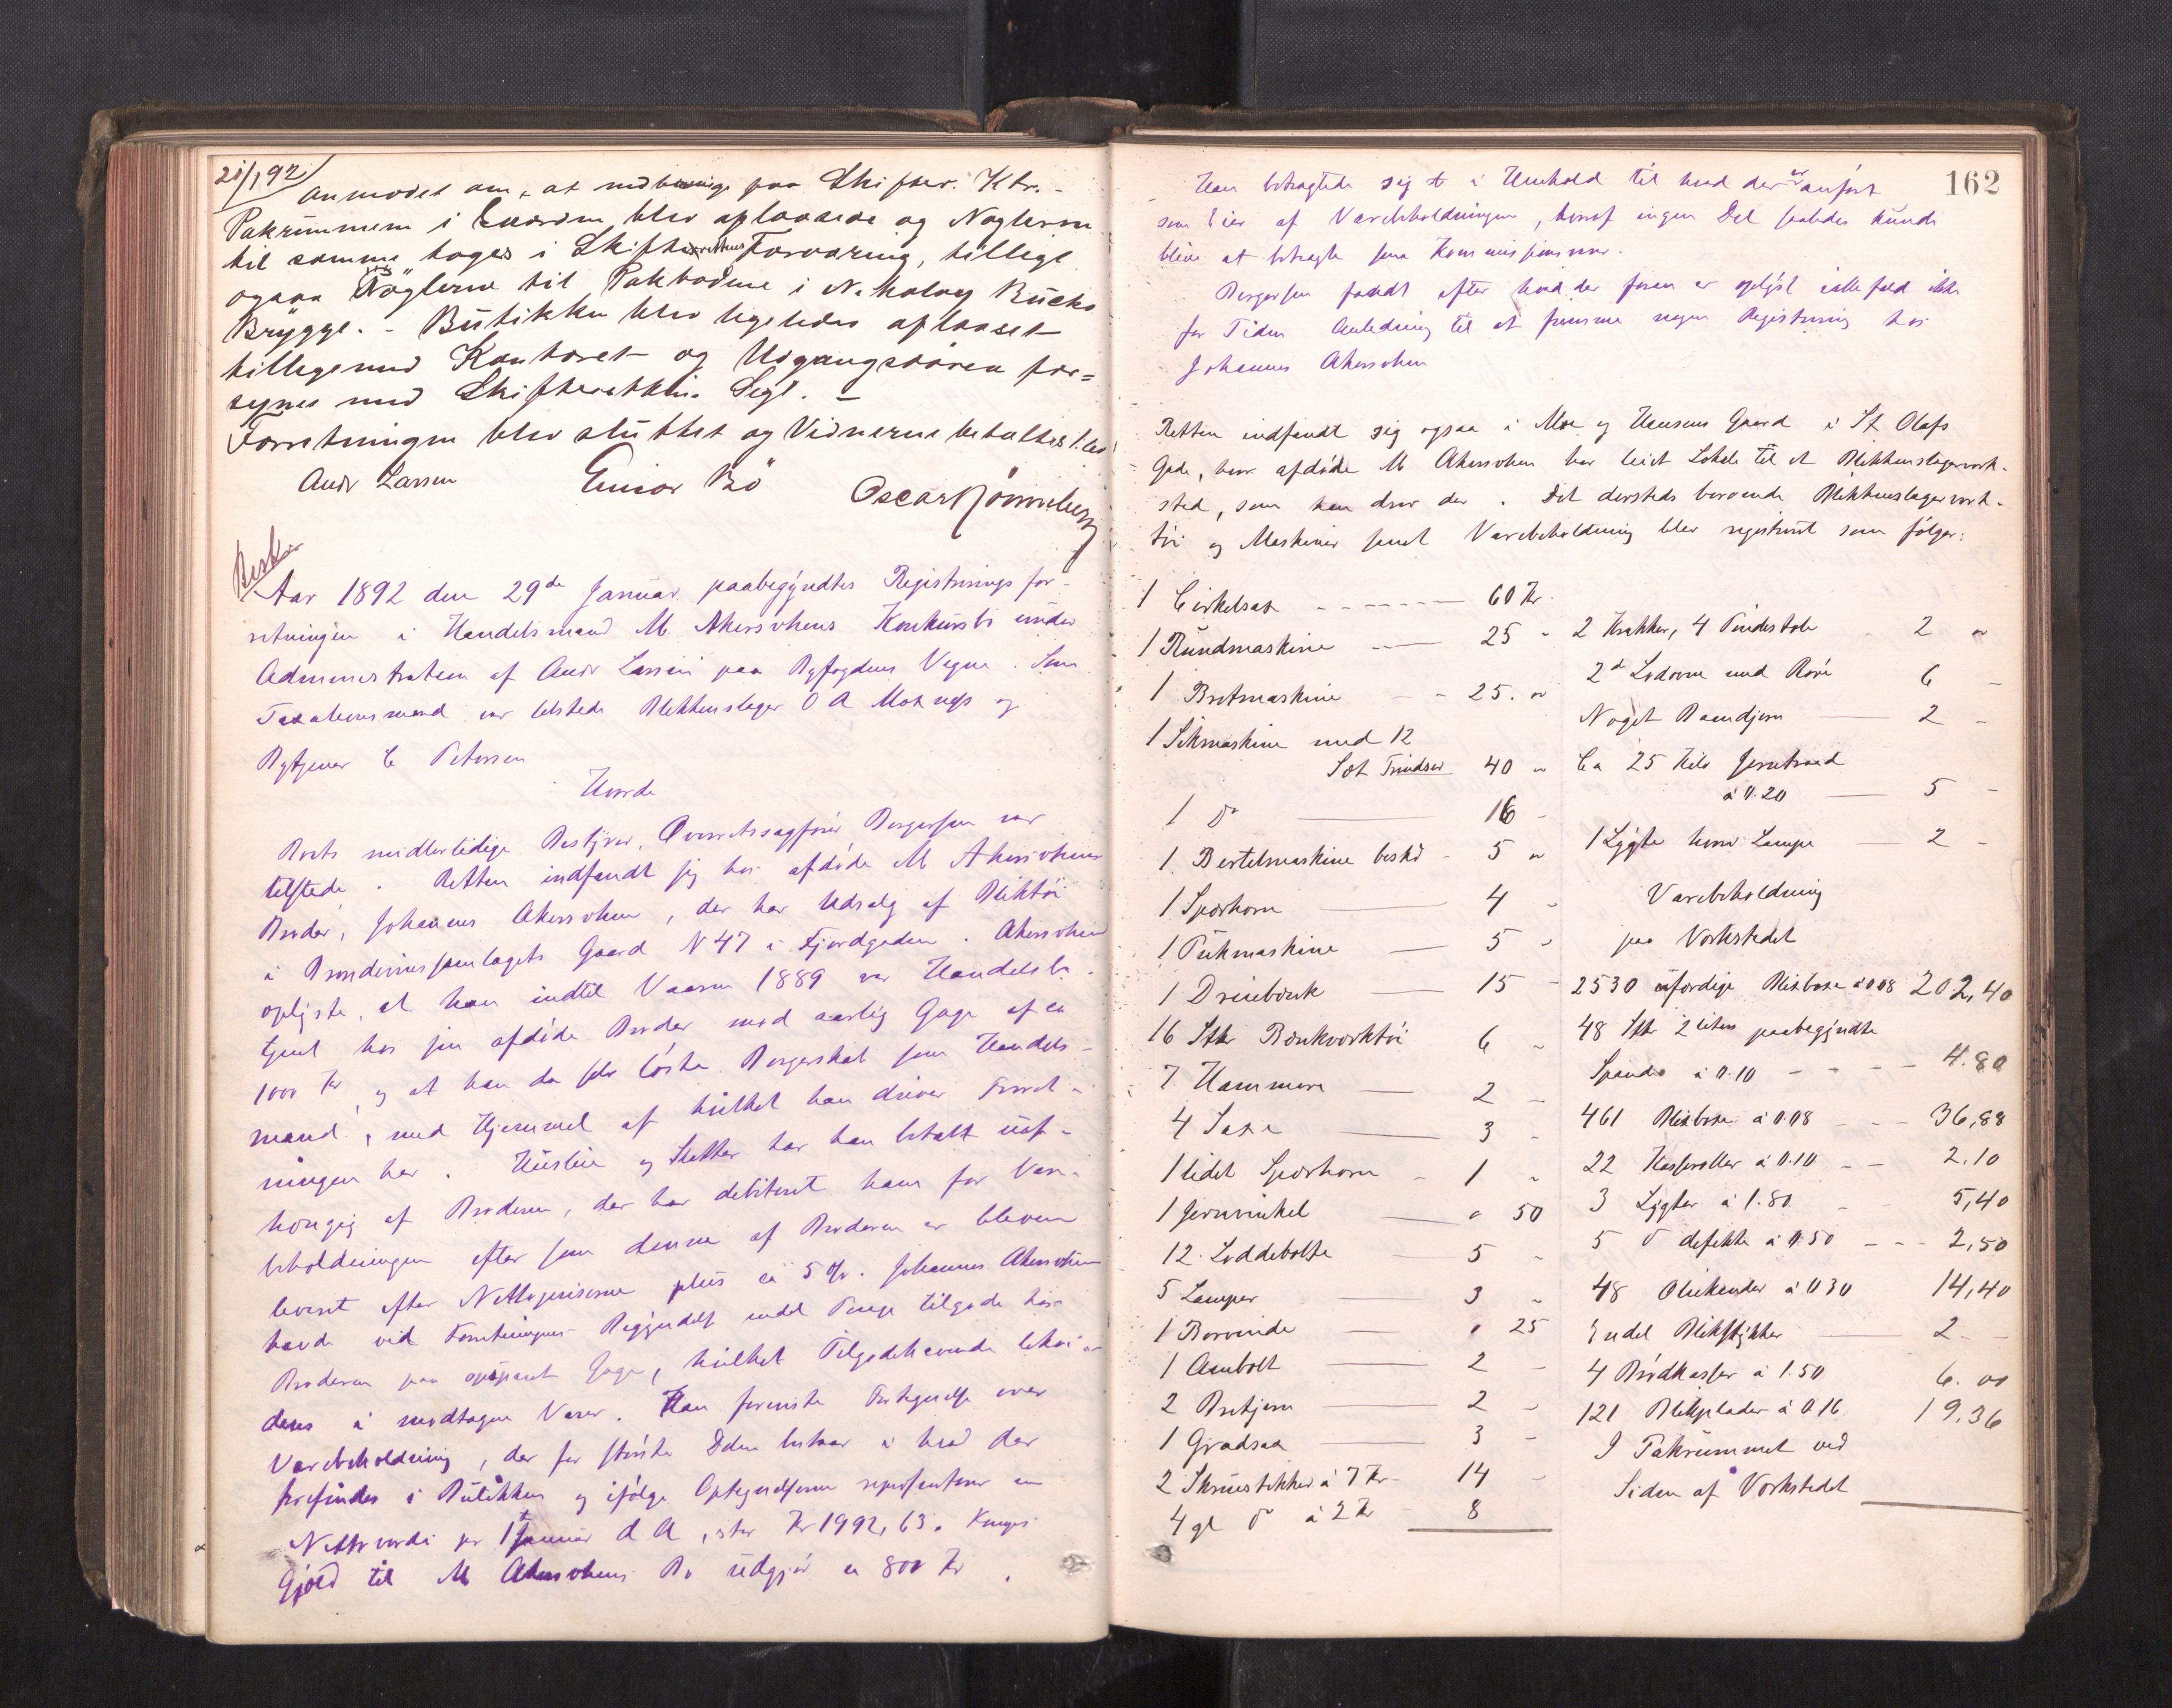 21/1 92
anmodet om, at indbringe paa Skifter. Ktr. -
Pakrummene i Gaarden blev aplaasede og Nøglerne
til samme toges i Skifterettens Forvaring, tillige
ogsaa Nøglerne til Pakboderne i Nikolay Bucks
Brygge. - Butikken blev ligeledes aflaaset
tilligemed Kontoret og Udgangsdøren for=
synes med Skifterettens Segl. -
Forretningen blev sluttet og Vidnerne betaltes
Andr Larsen Einar Bö Oscar Rönneberg
Aar 1892 den 29de Januar paabegyndtes Registreringsfor-
retningen i Handelsmand M. Akersohens Konkursbo under
Administration af Andr Larsen paa Byfogdens Vegne. Som
Taxationsmænd var tilstede Blikkenslager O A Moxnes og
Bytjener C Petersen
Hvorda
Boets midlertidige Bestyrer, Overretssagfører Borgersen var
tilstede. Retten indfandt sig hos afdøde M Akersohens
Broder, Johannes Akersohen, der har Udsalg af Bliktøi
i Brænderisamlagets Gaard N 47 i Fjordgaden. Akersohen
oplyste, at han indtil Vaaren 1889 var Handelsbe-
tjent hos sin afdøde Broder med aarlig Gage af ca
1000 Kr, og at han da selv løste Borgerskab som Handels-
mand, med Hjemmel af hvilket han driver Forret-
ningen her. Husleie og Skatter har han betalt uaf-
hængig af Broderen, der har debiteret ham for Vare-
beholdningen efter som denne af Broderen er bleven
leveret efter Nettopriserne plus ca 5 %. Johannes Akersohen
havde ved Forretningens Begyndelse endel Penge tilgode hos
Broderen paa opsparet Gage, hvilket Tilgodehavende likvi-
deres i modtagne Varer. Han foreviste Fortegnelse over
Varebeholdning, der for største Delen bestaar i hvad der
forefindes i Butikken og ifølge Optegnelserne repræsenterer en
Nettoværdi pr 1 Januar d A, stor Kr 1992,63.
Gjæld til M Akersohens Bo udgjør ca 800 Kr.
162
Han betragtede sig i Henhold til hvad der er anført
som Eier af Varebeholdningen, hvoraf ingen Del saaledes kunde
blive at betragte som Kommissionsvare.
Borgersen fandt efter hvad der foran er oplyst ialfald ikke
for Tiden Anledning til at fremme nogen Registrering hos
Johannes Akersohen
Retten indfandt sig ogsaa i Moe og Hansens Gaard i St Olafs
Gade, hvor afdøde M Akersohen har leiet Lokale til et Blikkenslagerverk-
sted, som han drev der. Det dersteds beroende Blikkenslagerverk-
tøi og Maskiner samt Varebeholdning blev registreret som følger:
1 Cirkelsax 60 Kr
1 Rundmaskine 25 -
1 Bretmaskine 25. -
1 Sikmaskine med 12
Sæt Trindser 40 -
1 do 16 -
1 Bertelmaskine beskd 5 -
1 Sporhorn 4 -
1 Pukmaskine 5 -
1 Dreiebænk 15 -
16 Stk Bænkværktøi 6 -
7 Hammere 2 -
4 Saxe 3 -
1 lidet Sporhorn 1 -
1 Jernvinkel " 50
12 Loddebolte 5 -
5 Lamper 3 -
1 Borvinde " 25
1 Ambolt 2 -
2 Bretjern 2 -
1 Gradsax 3 -
2 Skruestikker à 7 Kr 14 -
4 gl do à 2 Kr 8
2 Krakker, 4 Pindestole 2 -
2 do Lodovne med Rør 6 -
Noget Baandjern 2 -
Ca 25 Kilo Jerntraad
à 0.20 5 -
1 Lygte hvori Lampe 2 -
Varebeholdning
paa Verkstedet
2530 uferdige Blikbokse à 0.08 202,40
48 Stk 2 liters paabegyndte
Spande à 0.10 4.80
461 Blikbokse à 0.08 36,88
22 Kasseroller à 0.10 2.10
3 Lygter à 1.80 5,40
5 do defekte à 0.50 2,50
48 Blikkander à 0 30 14,40
Endel Blikstykker 2 -
4 Brødkasser à 1.50 6. 00
121 Blikplader à 0.16 19,36
I Pakrummet ved
Siden af Verkstedet